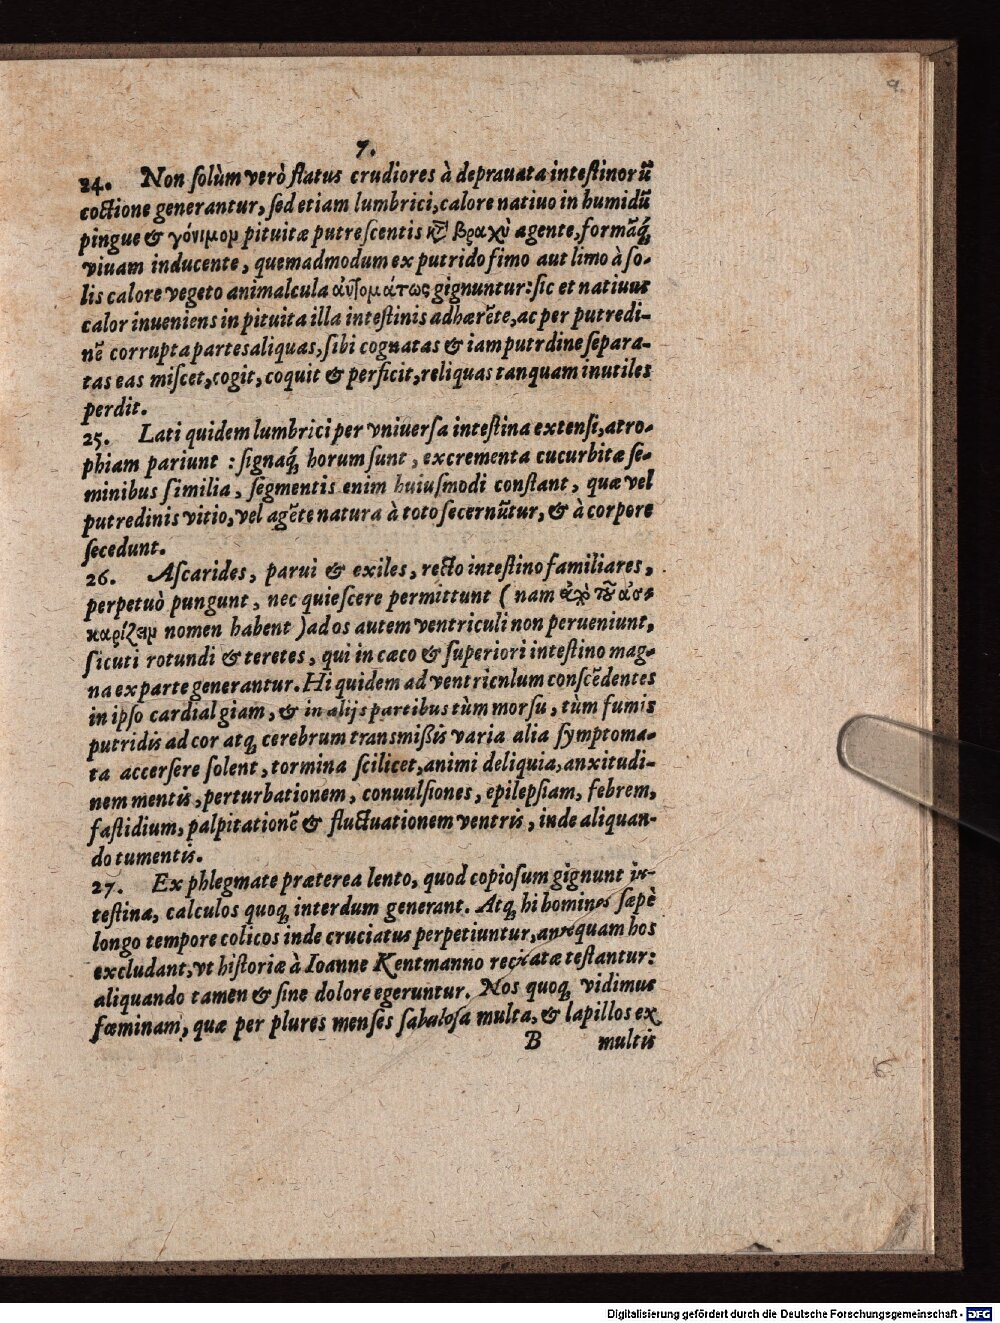 9.
7.
24. Non ſolùm verò flatus crudiores à deprauata inteſtinorũ
coctione generantur, ſed etiam lumbrici, calore natiuo in humidũ
pingue & γόνιμομ pituitæ putreſcentis κτ̃ βραχὺ agente, formãq́,
viuam inducente, quemadmodum ex putrido fimo aut limo à ſo-
lis calore vegeto animalcula ἀυτομάτως gignuntur: ſic et natiuus
calor inueniens in pituita illa inteſtinis adhærẽte, ac per putredi-
nẽ corrupta partes aliquas, ſibi cognatas & iam putrdine ſepara-
tas eas miſcet, cogit, coquit & perficit, reliquas tanquam inutiles
perdit.
25. Lati quidem lumbrici per vniuerſa inteſtina extenſi, atro-
phiam pariunt : ſignaq́, horum ſunt, excrementa cucurbitæ ſe-
minibus ſimilia, ſegmentis enim huiuſmodi conſtant, quæ vel
putredinis vitio, vel agẽte natura à toto ſecernũtur, & à corpore
ſecedunt.
26. Aſcarides, parui & exiles, recto inteſtino familiares,
perpetuò pungunt, nec quieſcere permittunt ( nam ἀπὸ τοῦ ἀσ-
καρίζειμ nomen habent ) ad os autem ventriculi non perueniunt,
ſicuti rotundi & teretes, qui in cæco & ſuperiori inteſtino mag-
na ex parte generantur. Hi quidem ad ventricnlum conſcẽdentes
in ipſo cardialgiam, & in alijs partibus tùm morſu, tùm fumis
putridis ad cor atq, cerebrum transmißis varia alia ſymptoma-
ta accerſere ſolent, tormina ſcilicet, animi deliquia, anxitudi-
nem mentis, perturbationem, conuulſiones, epilepſiam, febrem,
faſtidium, palpitationẽ & fluctuationem ventris, inde aliquan-
do tumentis.
27. Ex phlegmate præterea lento, quod copioſum gignunt in-
teſtina, calculos quoq, interdum generant. Atq, hi homines ſæpè
longo tempore colicos inde cruciatus perpetiuntur, antequam hos
excludant, vt hiſtoriæ à Ioanne Kentmanno recitatæ teſtantur:
aliquando tamen & ſine dolore egeruntur. Nos quoq, vidimus
fœminam, quæ per plures menſes ſabuloſa multa, & lapillos ex
B multis
6
Digitalisierung gefördert durch die Deutsche Forschungsgemeinschaft - DFG